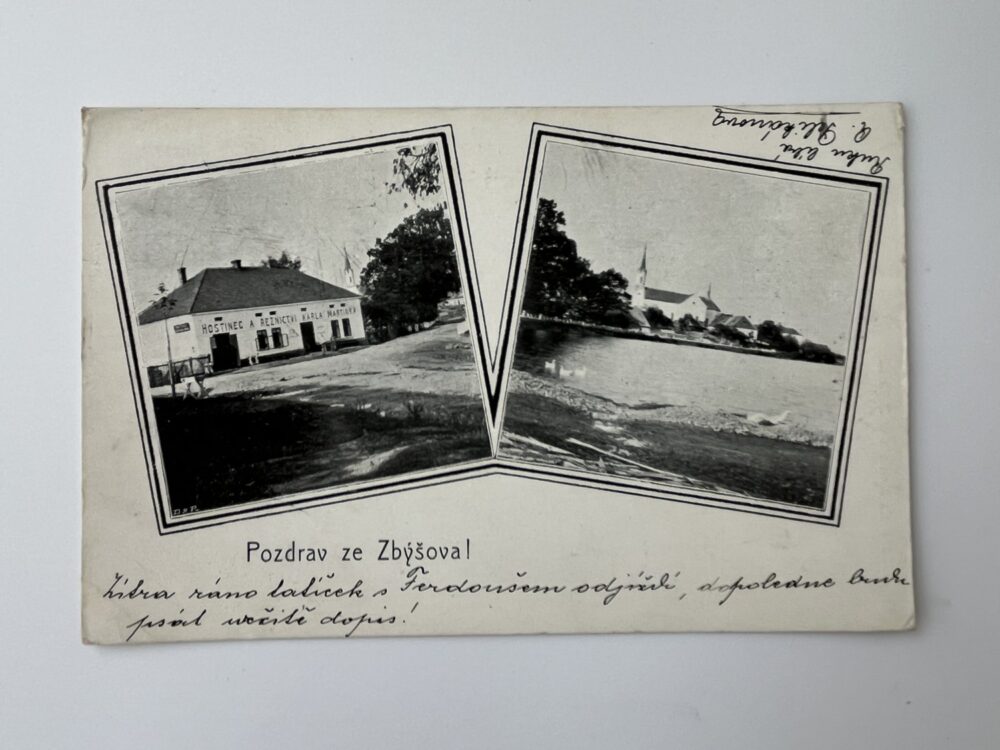 Ruku líbá
HOSTINEC A ŘEZNICTVÍ KARLA
Pozdrav ze Zbýšova!
Zítra ráno tatíček s Ferdoušem odjíždí, dopoledne budu
psát určitě dopis!